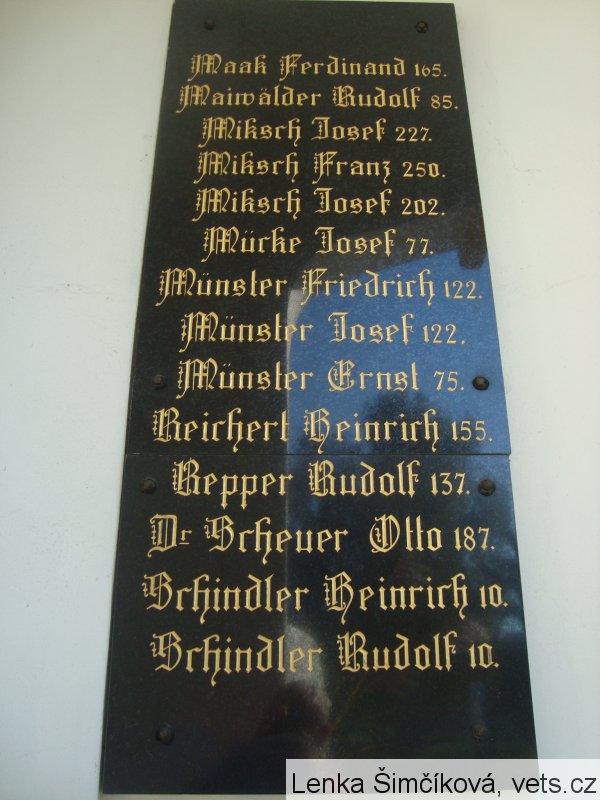 Maak Ferdinand 165.
Maiwälder Rudolf 85.
Miksch Josef 227.
Miksch Franz 250.
Miksch Josef 202.
Mücke Josef 77.
Münster Friedrich 122.
Münster Josef 122.
Münster Ernst 75.
Reichert Heinrich 155.
Repper Rudolf 137.
Dr Scheuer Otto 187.
Schindler Heinrich 10.
Schindler Rudolf 10.
Lenka Šimčíková, vets.cz